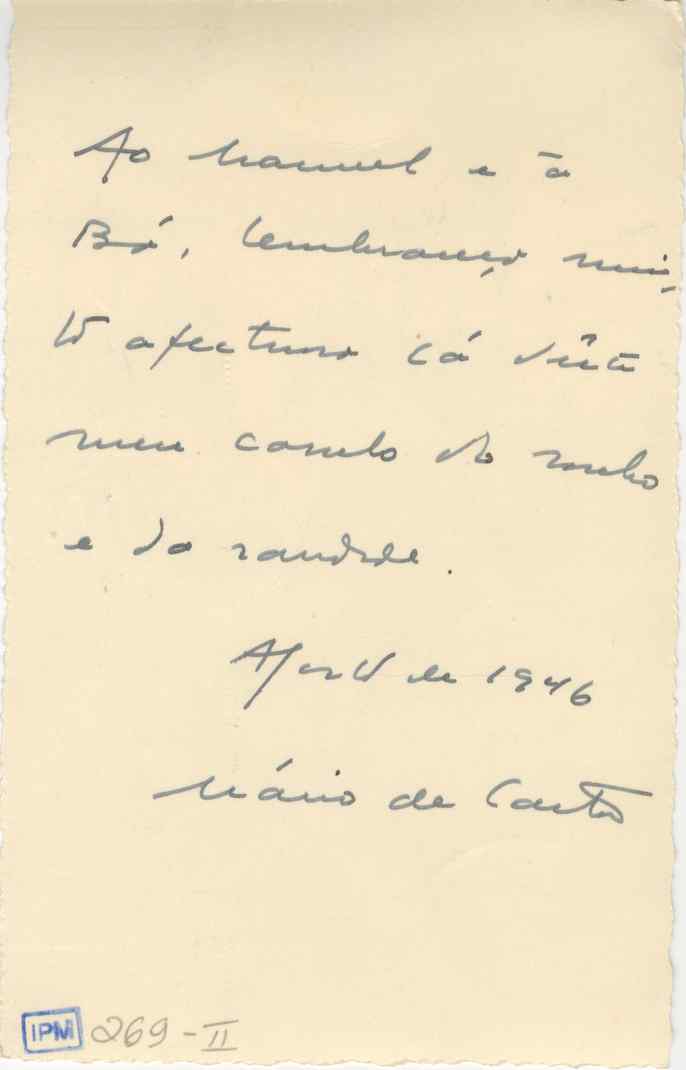 Ao Manuel e à
Bá, lembrança mui-
to afectuosa cá dêste
meu casulo do sonho
e da saudade.
Agosto de 1946
Mário de Castro
IPM 269-II